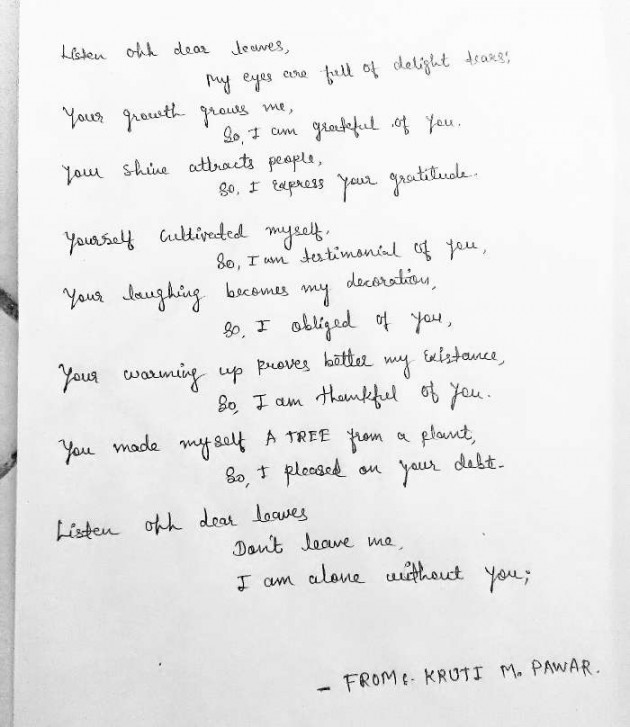 Listen ohh dear leaves,
My eyes are full of delight tears;
Your growth grows me,
So, I am grateful of you.
Your shine attracts people,
So, I express your gratitude.
Yourself cultivated myself.
So, I am testimonial of you,
Your laughing becomes my decoration,
So, I obliged of you,
Your warming up proves better my existance,
So, I am thankful of you.
You made myself A TREE from a plant,
So, I pleased on your debt.
Listen ohh dear leaves
Don't leave me,
I am alone without you;
- FROM:- KRUTI M. PAWAR.